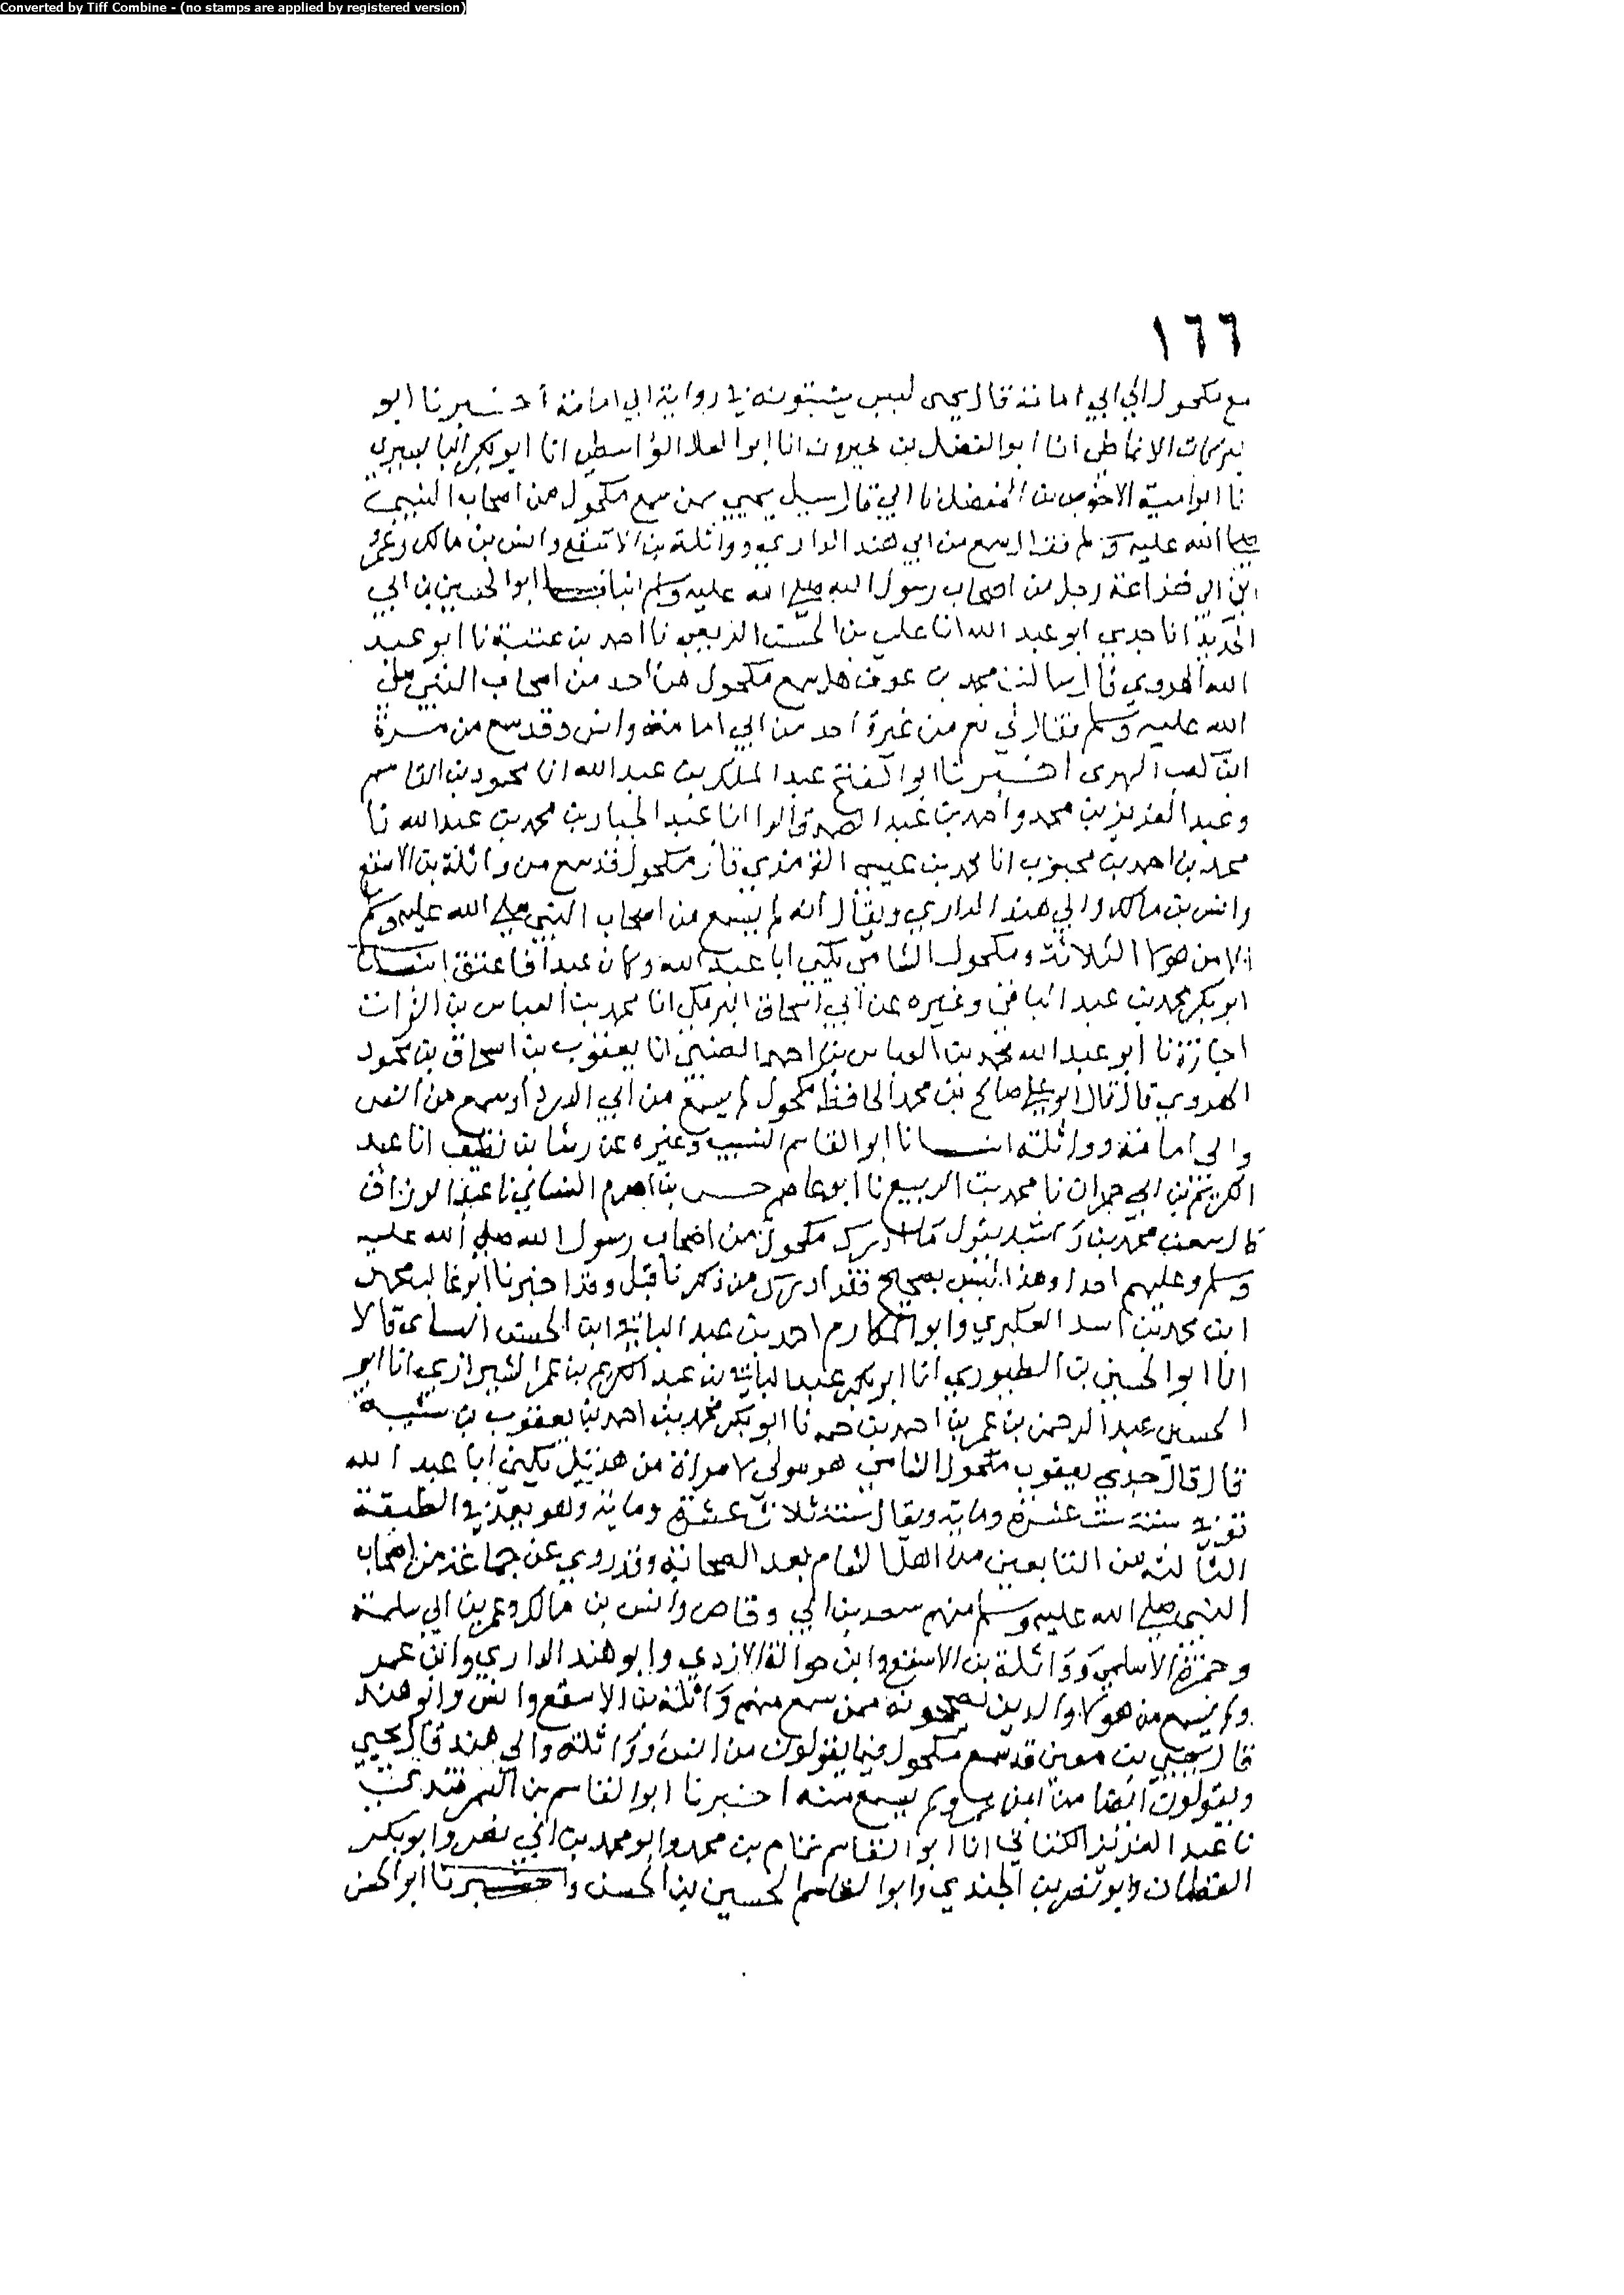 Converted by Tiff Combine - (no stamps are applied by registered version)
١٦٦
مع مكحول الي ابي امامة قال يحيى ليس يثبتونه في رواية ابي امامة أخبرنا ابو
بركات الانماطي انا ابوالفضل بن خيرون انا ابوالعلا الواسطي انا ابوبكر البابسيري
نا ابوامية الاحوص بن المفضل نا ابي قال سيل يحيي ممن سمع مكحول من اصحاب النبي
صلى الله عليه وسلم فقال سمع من ابي هند الداري وواثلة بن الاسقع وانس بن مالك
ابن ابي خزاعة رجل من اصحاب رسول الله صلى الله عليه وسلم انبانا ابوالحسين بن ابي
الحديد انا جدي ابو عبد الله انا علي بن الحسن الربعي نا احمد بن عتبة نا ابو عبد
الله الهروي قال سالت محمد بن عوف هل سمع مكحول من احد من اصحاب النبي صلى
الله عليه وسلم فقال لي نعم من غيرة احد من ابي امامة وانس وقد سمع من مرة
ابن كعب البهرى اخبرنا ابوالفتح عبد الملك بن عبد الله انا محمود بن القاسم
وعبد العزيز بن محمد واحمد بن عبد الصمد قالوا انا عبد الجبار بن محمد بن عبد الله نا
محمد بن احمد بن محبوب انا محمد بن عيسى الترمذي قال مكحول قد سمع من واثلة بن الاسقع
وانس بن مالك وابي هند الداري ويقال انه لم يسمع من اصحاب النبي صلى الله عليه وسلم
الا من هولا الثلاثة ومكحول الشامي يكنى ابا عبد الله وكان عبدا فاعتق انبانا
ابوبكر محمد بن عبد الباقي وغيره عن ابي اسحاق البرمكي انا محمد بن العباس بن الفرات
اجازة نا ابو عبد الله محمد بن العباس بن احمد الضبي انا يعقوب بن اسحاق بن محمود
الهروي قال قال ابو علي صالح بن محمد الحافظ مكحول لم يسمع من ابي الدرداء وسمع من انس
وابي امامة وواثلة انبانا ابوالقاسم النسيب وغيره عن رشا بن نظيف انا عبد
الكريم بن ابي جدران نا محمد بن الربيع نا ابو عاصم بن اصرم النسائي نا عبد الرزاق
قال سمعت محمد بن راشد يقول ما ادرك مكحول من اصحاب رسول الله صلى الله عليه
وسلم وعليهم احدا وهذا ليس بصحيح فقد ادرك من ذكرنا قبل وقد اخبرنا ابوغالب محمد
ابن محمد بن اسد العكبري وابو المكارم احمد بن عبد الباقي ابن الحسن قالا
انا ابوالحسين بن الطيوري انا ابوبكر عبد الباقي بن عبد الكريم بن عمر الشيرازي انا ابو
الحسين عبد الرحمن بن عمر بن احمد بن حمه نا ابو بكر محمد بن احمد بن يعقوب بن شيبة
قال قال جدي يعقوب مكحول الشامي هو مولى لامراة من هذيل يكنى ابا عبد الله
توفي سنة ست عشرة وماية ويقال سنة ثلاث عشرة وماية وهو يعد في الطبقة
الثالثة من التابعين من اهل الشام بعد الصحابة وقد روي عن جماعة من اصحاب
النبي صلى الله عليه وسلم منهم سعد بن ابي وقاص وانس بن مالك وعمر بن ابي سلمة
وحمزة الاسلمي وواثلة بن الاسقع وابن حوالة الازدي وابو هند الداري وابن عمر
ولم يسمع من هولا والذين يصححونه ممن سمع منهم واثلة بن الاسقع وانس وابو هند
قال يحيي بن معين قد سمع مكحول فيما يقولون من انس وواثلة وابي هند قال يحيي
ويقولون ايضا من ابن عمر ولم يسمع منه اخبرنا ابوالقاسم بن السمرقندي
نا عبد العزيز الكتاني انا ابوالقاسم تمام بن محمد وابو محمد بن ابي نصر وابو بكر
القطان وابو نصر بن الجندي وابو القاسم الحسين بن الحسن واخبرنا ابو الحسن